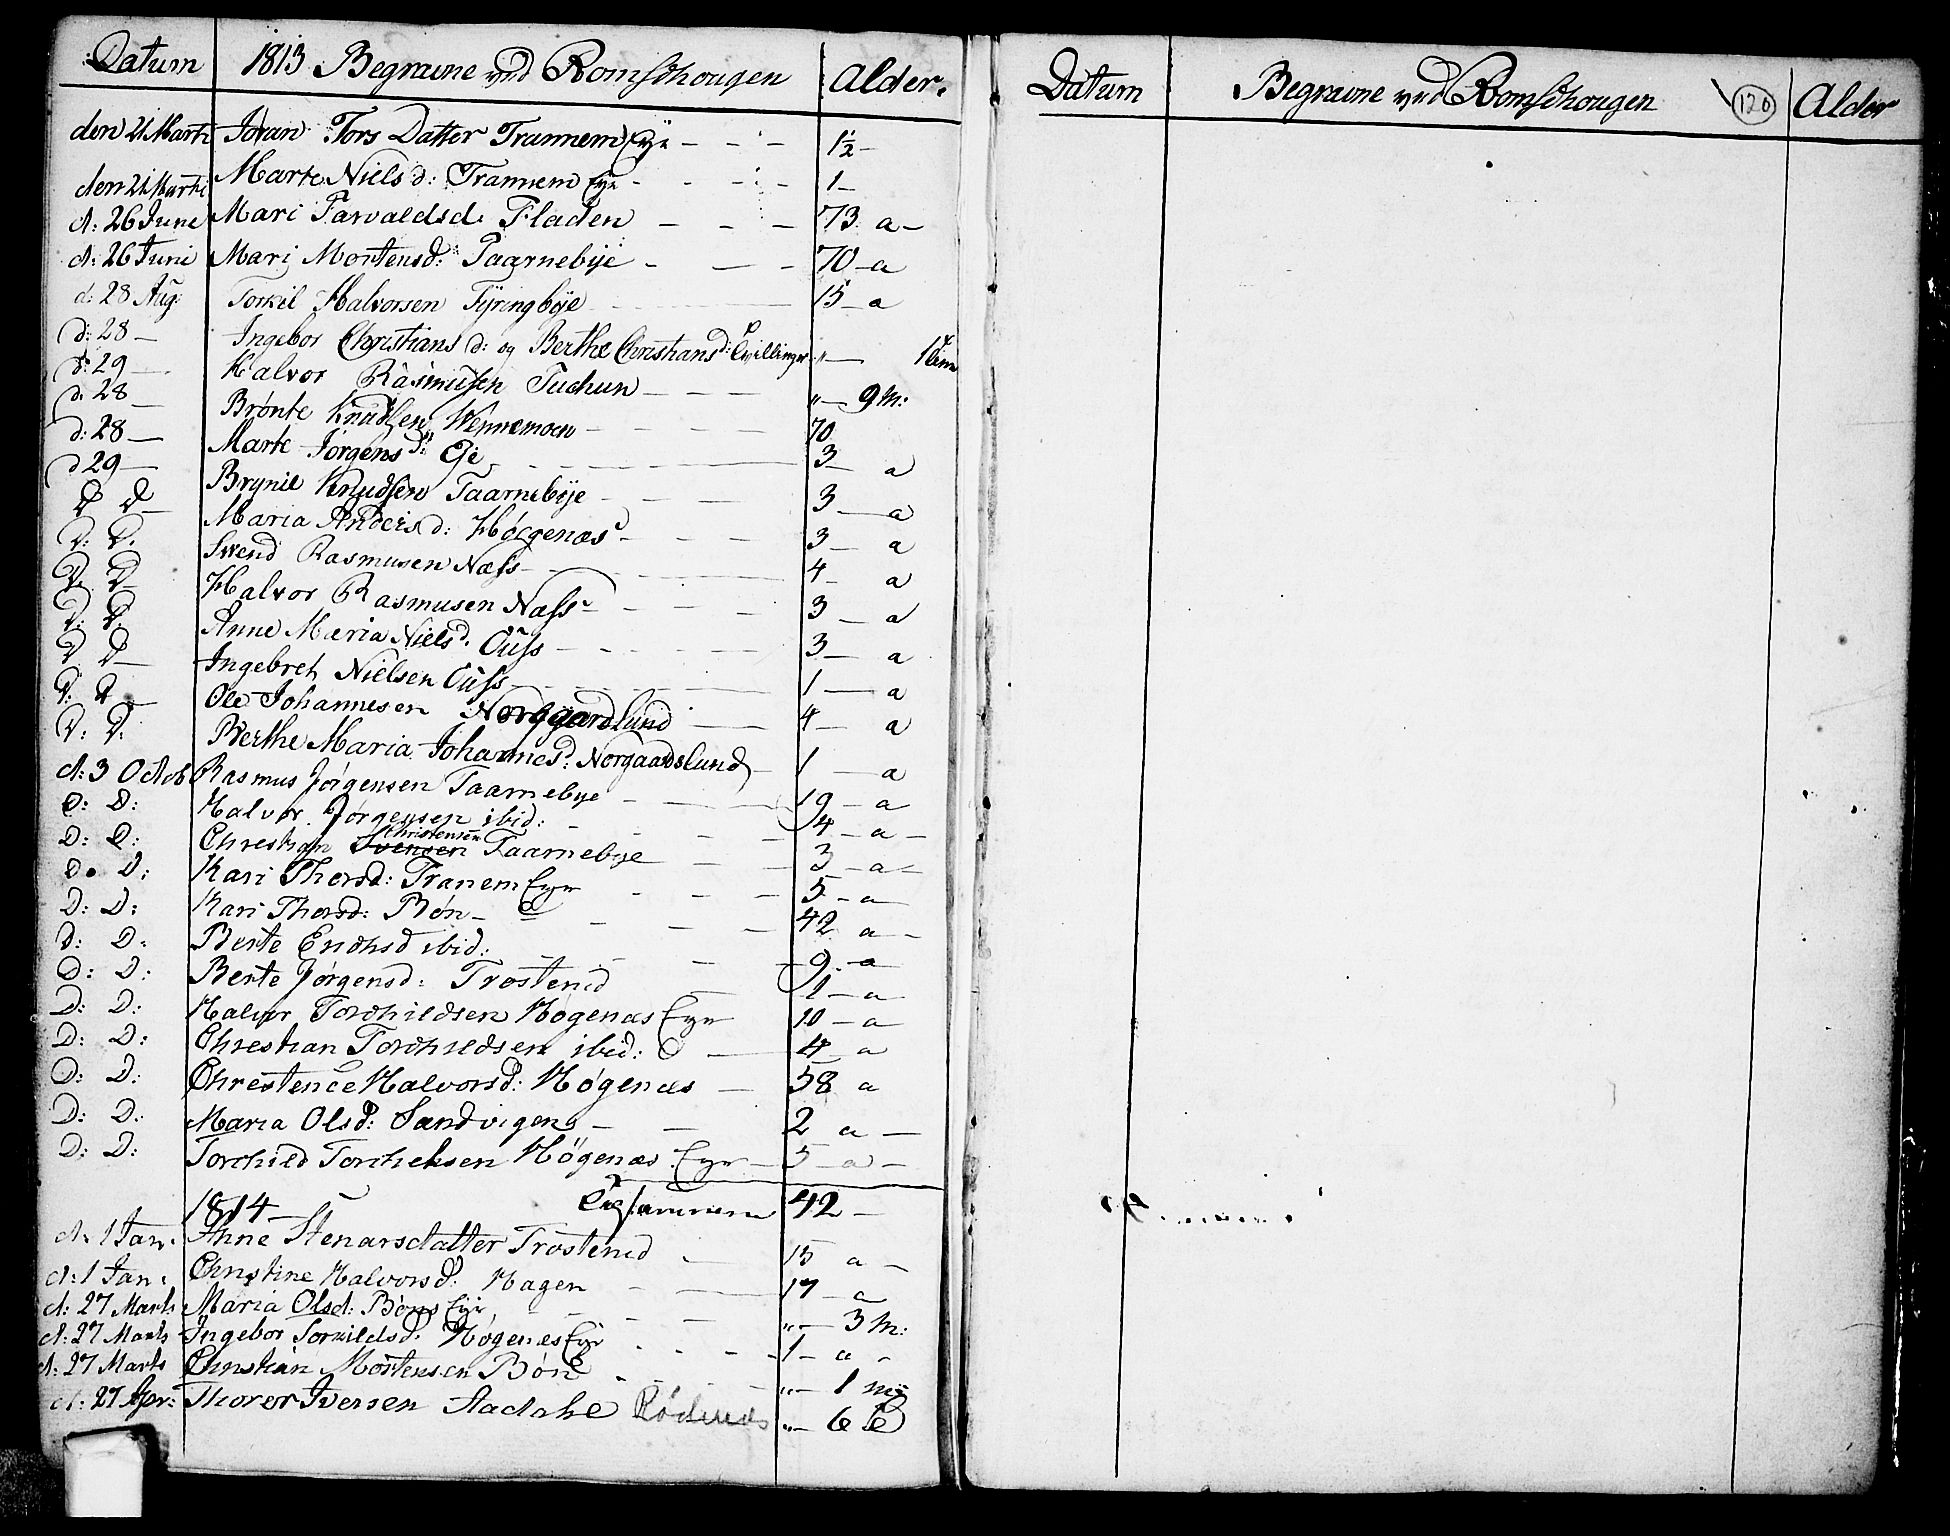 Datum 1813 Begravne ved Romschougen Alder.
den 21 Marti Joran Tors Datter Trannem Eye - - - 1½ -
den 21 Marti Marte Niels d: Trannem Eye - - - 1 -
d: 26 June Mari Tarvaldsd: Fladen - - - 73 a -
d: 26 Juni Mari Mortensd: Taarnebye - - - 70 - a
d: 28 Aug: Torkil Halvorsen Tÿringbÿe 15 - a
d: 28 - Ingebor Christians d: og Berthe Christiansd: Tvillinger „ -
d: 29 - Halvor Rasmusen Tuchun - - - „ - 9 M:
d: 28 - Brønte Knudsen Wennemoen - - - 70
d: 28 - Marte Jørgensd: Eje - - - 3 - a
d 29 - Brynil Knudsen Taarnebÿe - - - 3 - a
D D - Maria Andersd: Hølgenæs - - - 3 - a
D: D. Svend Rasmusen Næss - - - 4 - a
D. D Halvor Rasmusen Næss - - - 3 - a
D: D. Anne Maria Nielsd. Ouss - - - 3 - a
D D - Ingebret Nielsen Ouss - - - 1 - a
D: D - Ole Johannesen Norggardlund - - 4 - a
D: D: Berthe Maria Johannesd: Norgaardslund - 1 - a
d: 3 Octob Rasmus Jørgensen Taarnebye - - - 19 - a
D: D: Halvor Jørgensen ibid: - - - 4 - a -
D: D: Christian Svensen Christensen Taarnebye - - 3 - a -
D. D: Kari Thorsd: Tranem Eye - - - 5 - a -
D: D: Kari Thorsd: Bøn - - - 42 a -
D: D: Berte Enchsd ibid: - - - 9 - a
D: D: Berte Jørgensd: Trostenid - 1 - a -
D: D: Halvor Torchildsen Høgenæs Eye 10 - a -
D: D: Christian Torchildsen ibid: - 4 - a
D: D: Christence Halvorsd: Høgenæs - 58 a
D: D: Maria Olsd: Sandvigen - - 2 a -
D: D: Torchild Torchelsen Høgenæs Eye - 5 - a -
1814 - Tilsammen 42 -
d: 1 Jan: Anne Stenarsdatter Trostenid - - 15 a -
d: 1 Jan: Christine Halvorsd: Hagen - - 17 - a
d: 27 Marts Maria Olsd: Bøns Eje - - - „ - 3 M:
d: 27 Marts Ingebor Torkildsd: Høgenæs Eje - - - 1 - a -
d: 27 Marts Christian Mortensen Bøn - - - „ - 1
d: 27 Apr: Thorer Iversen Aadahl Rødenæs „ - 6
Datum Begravne ved Romschougen 120 Alder